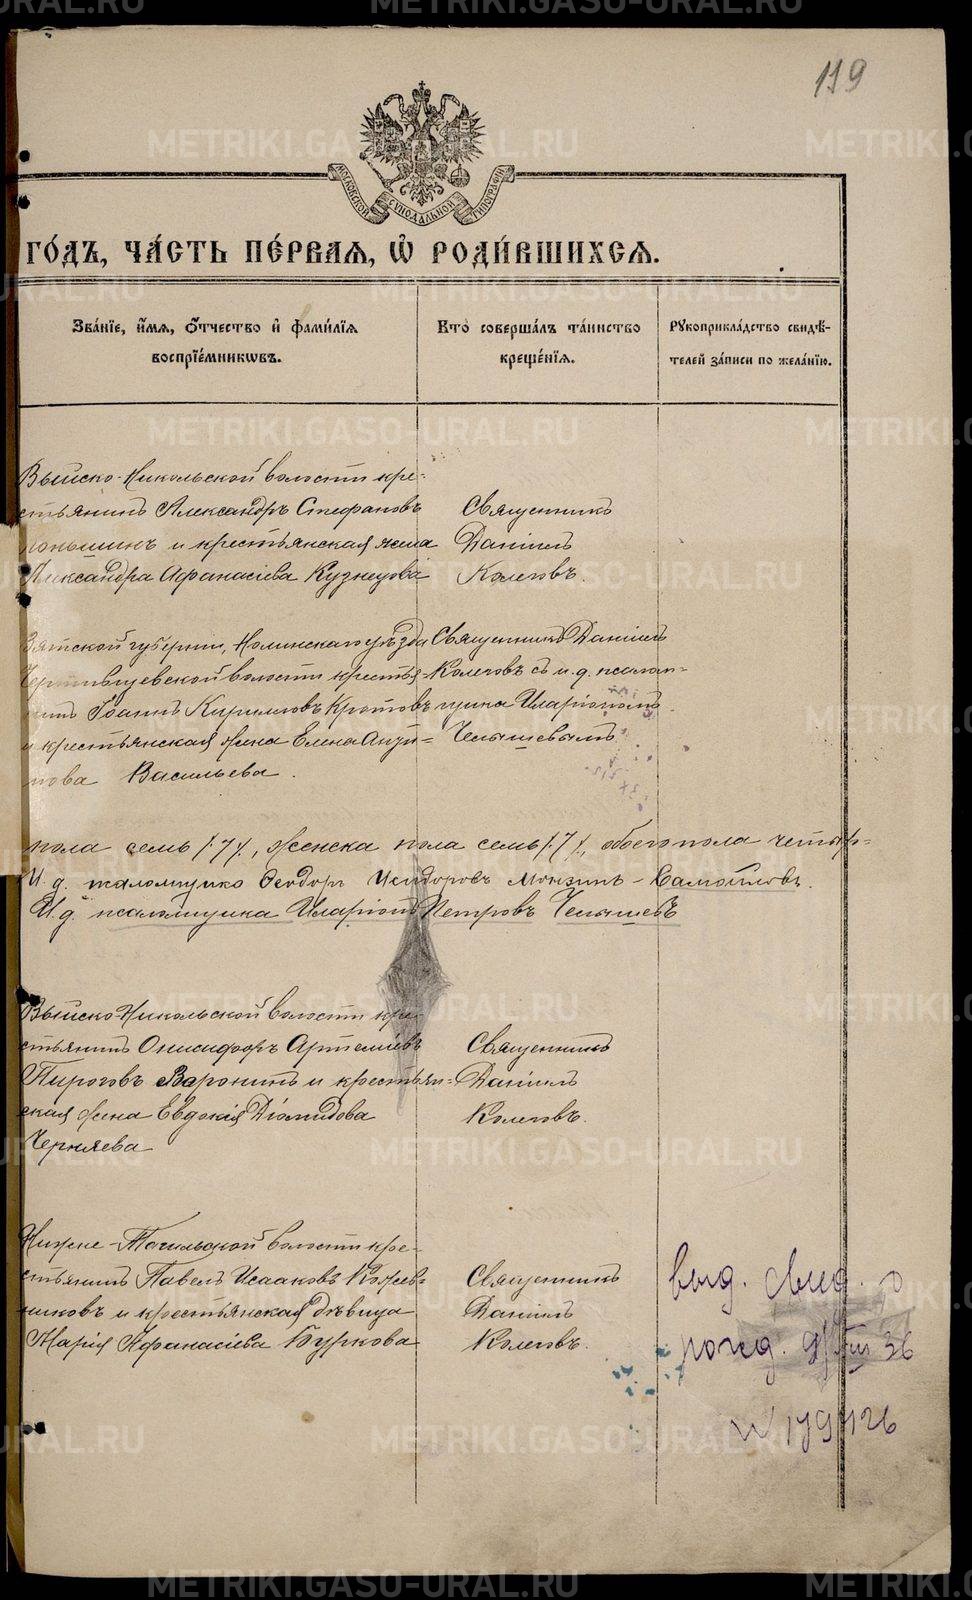 119
МОСКОВСКОЙ СѴНОДАЛЬНОЙ ТИПОГРАФІИ
ГО́ДЪ, ЧА́СТЬ ПЕ́РВАѦ, Ѡ҆ РОДИ́ВШИХСѦ.
Зва́нїе, и҆́мѧ, ѻ҆́тчество и҆ фами́лїѧ
воспрїе́мникѡвъ.
Кто̀ соверша́лъ та́инство
креще́нїѧ.
Рꙋкоприкла́дство свидѣ́-
телей за́писи по жела́нїю.
Выйско-Никольской волости кре-
стьянинъ Александръ Стефановъ
и крестьянская жена
Александра Афанасіева Кузнецова
Священникъ
Даніилъ
Колеговъ.
Вятской губерніи, Нолинскаго уѣзда
волости крестья-
нинъ Іоаннъ Кирилловъ Кротовъ
и крестьянская жена Елена Анти-
пова Васильева.
Священникъ Даніилъ
Колеговъ съ и. д. псалом-
щика Иларіономъ
Челышевымъ
пола семь /7/, женска пола семь /7/, обоего пола четыр-
И. д. псаломщика Ѳеодоръ Исидоровъ
И. д. псаломщика Иларіонъ Петровъ Челышевъ
Выйско-Никольской волости кре-
стьянинъ Онисифоръ Артемьевъ
Пироговъ Воронинъ и крестьян-
ская жена Евдокія Діомидова
Черняева
Священникъ
Даніилъ
Колеговъ.
Нижне-Тагильской волости кре-
стьянинъ Павелъ Исааковъ Кожев-
никовъ и крестьянская дѣвица
Марія Афанасіева Буркова
Священникъ
Даніилъ
Колеговъ.
выд. свид. о
рожд. 9/VIII 36
N 179426
METRIKI.GASO-URAL.RU